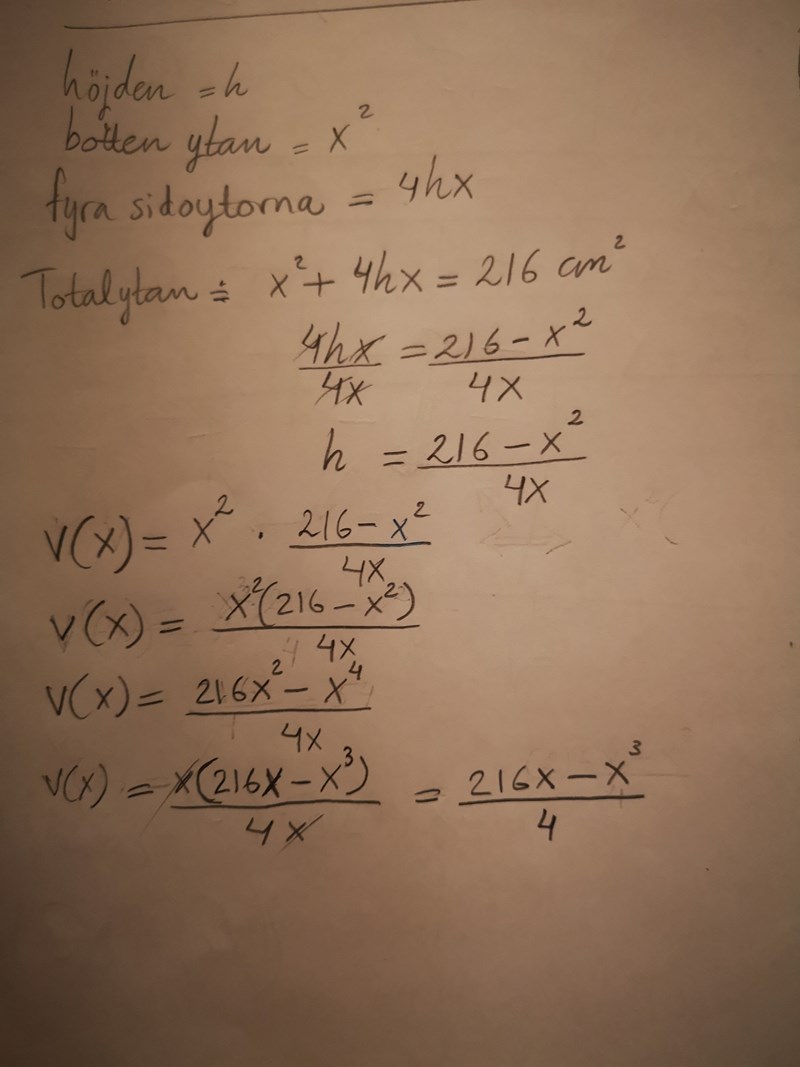 höjden = h
botten ytan = x²
fyra sidoytorna = 4hx
Totalytan = x² + 4hx = 216 cm²
4hx/4x = (216 - x²)/4x
h = (216 - x²)/4x
V(x) = x² · (216 - x²)/4x
V(x) = x²(216 - x²)/4x
V(x) = (216x² - x⁴)/4x
V(x) = x(216x - x³)/4x = (216x - x³)/4